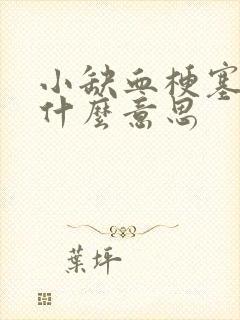 小缺血梗塞
什麼意思
葉坪